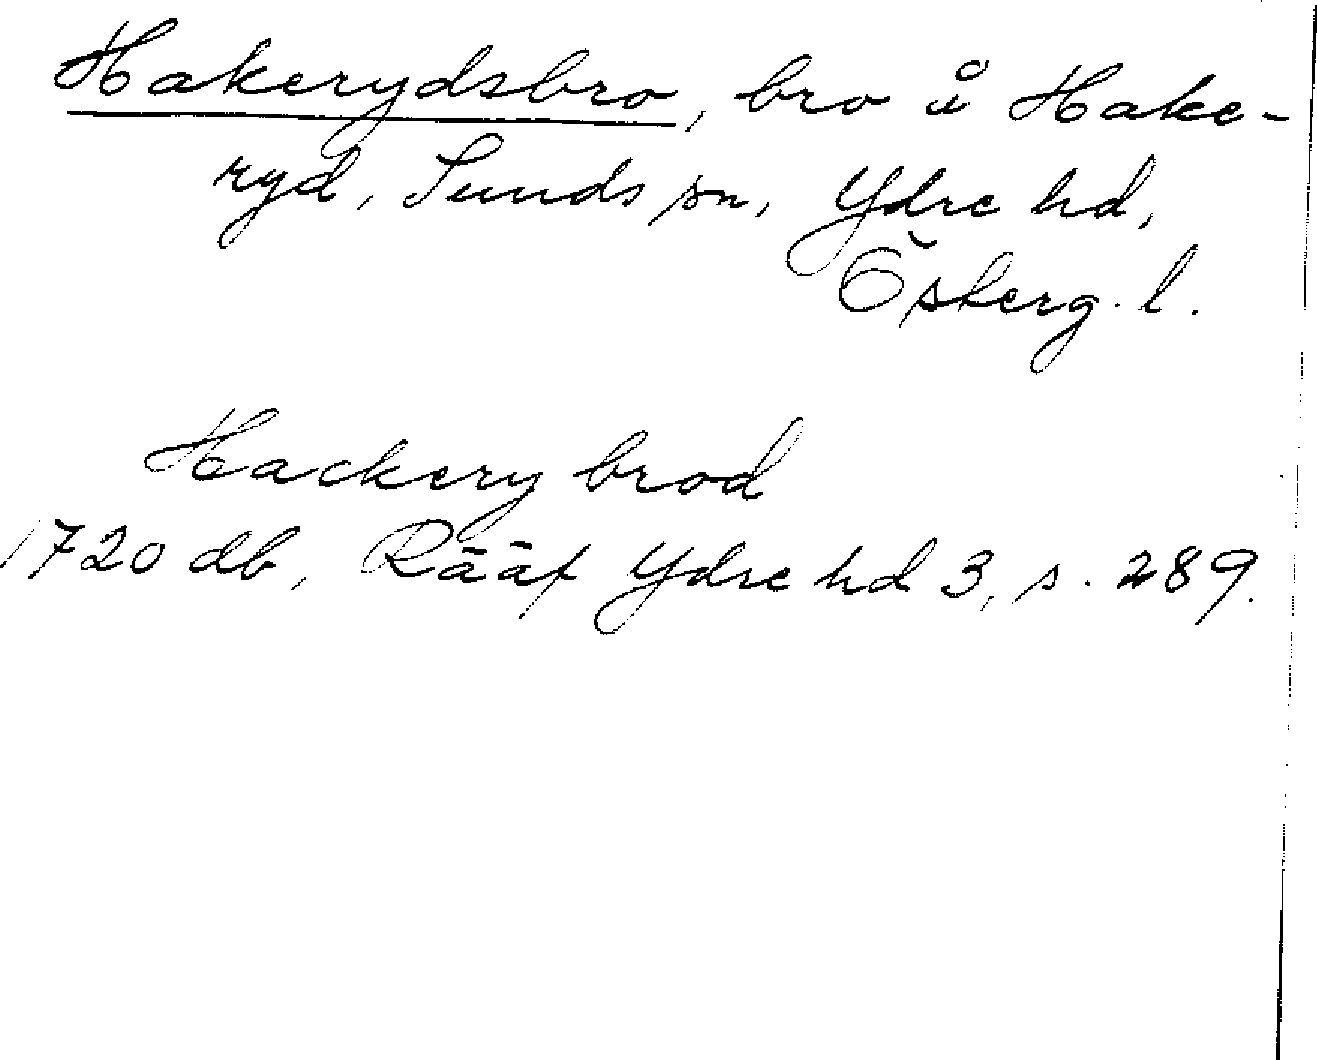 Hakerydsbro, bro å Hake-
ryd, Sunds sn, Ydre hd,
Östergl.
Hackery brod
1720 db, Rääf Ydre hd 3, s. 289.